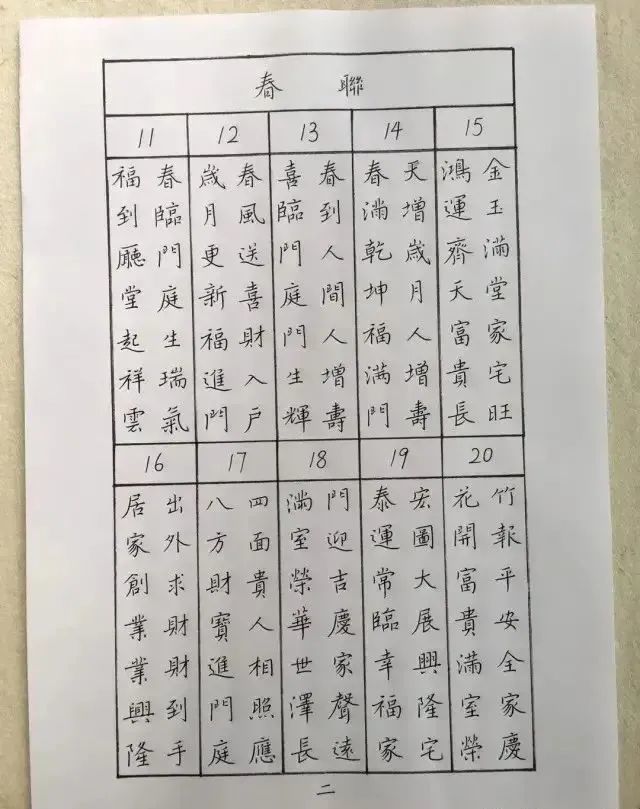 春聯
11
春臨門庭生瑞氣
福到廳堂起祥雲
12
春風送喜財入戶
歲月更新福進門
13
春到人間人增壽
喜臨門庭門生輝
14
天增歲月人增壽
春滿乾坤福滿門
15
金玉滿堂家宅旺
鴻運齊天富貴長
16
出外求財財到手
居家創業業興隆
17
四面貴人相照應
八方財寶進門庭
18
門迎吉慶家聲遠
滿室榮華世澤長
19
宏圖大展興隆宅
泰運常臨幸福家
20
竹報平安全家慶
花開富貴滿室榮
二